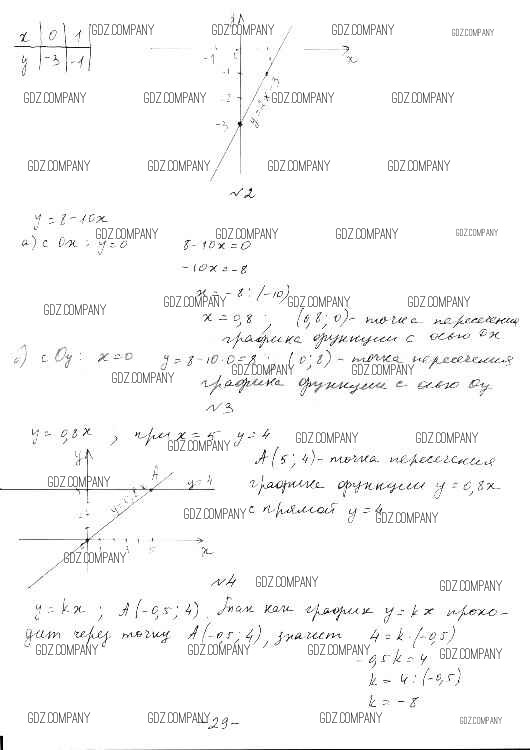 x | 0 | 1
y | -3 | -1
GDZ.COMPANY GDZ.COMPANY GDZ.COMPANY GDZ.COMPANY
-1 0 x
-1
GDZ.COMPANY GDZ.COMPANY GDZ.COMPANY GDZ.COMPANY
-2
-3
GDZ.COMPANY GDZ.COMPANY GDZ.COMPANY GDZ.COMPANY
№2
y = 8-10x
GDZ.COMPANY GDZ.COMPANY GDZ.COMPANY GDZ.COMPANY
а) с Ox: y=0 8-10x=0
-10x=-8
x = -8:(-10)
GDZ.COMPANY GDZ.COMPANY GDZ.COMPANY GDZ.COMPANY
x = 0,8; (0,8; 0) - точка пересечения
графика функции с осью Ox
б) с Oy: x=0 y=8-10·0=8; (0; 8) - точка пересечения
GDZ.COMPANY GDZ.COMPANY GDZ.COMPANY
графика функции с осью Oy
№3
y = 0,8x; при x=5 y=4
GDZ.COMPANY GDZ.COMPANY GDZ.COMPANY
y A A(5; 4) - точка пересечения
GDZ.COMPANY y=4 графика функции y=0,8x
y=0,8x
GDZ.COMPANY GDZ.COMPANY
с прямой y=4
x
GDZ.COMPANY
№4
GDZ.COMPANY GDZ.COMPANY
y=kx; A(-0,5; 4). Так как график y=kx прохо-
дит через точку A(-0,5; 4), значит 4=k·(-0,5)
GDZ.COMPANY GDZ.COMPANY GDZ.COMPANY GDZ.COMPANY
-0,5k=4
k = 4:(-0,5)
k = -8
GDZ.COMPANY GDZ.COMPANY GDZ.COMPANY GDZ.COMPANY
-29-